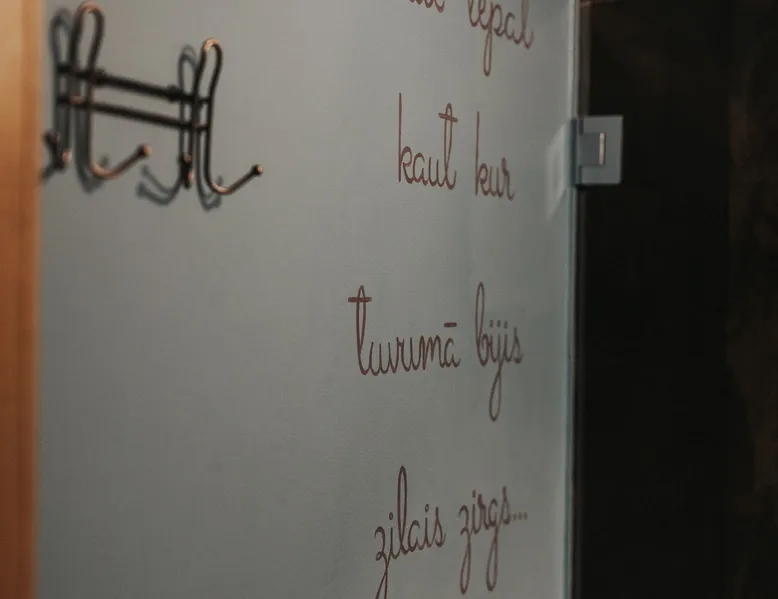 lepat
kaut kur
tuvumā bijis
zilais zirgs...